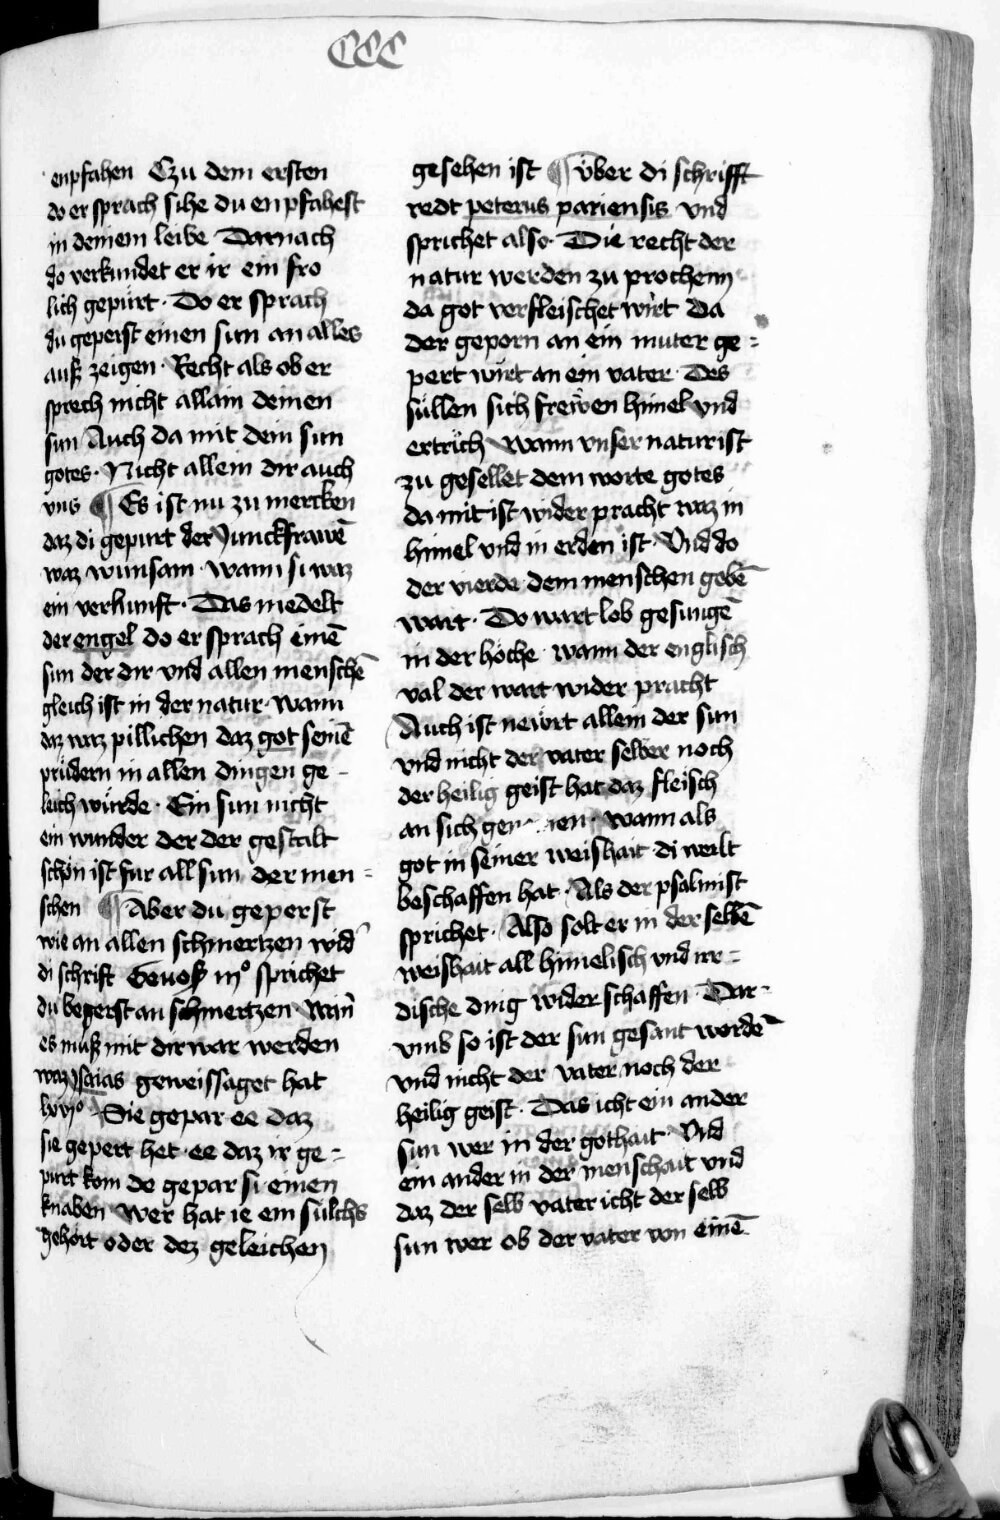 CCC
enpfahen Czu dem ersten
do er sprach sihe du enpfahest
in deinem leibe Darnach
do verkundet er ir ein fro
lich gepürt · Do er sprach
du geperst einen sun an alles
auß zeigen · Recht als ob er
sprech nicht allain deinen
sun Auch da mit dein sun
gotes · Nicht allein dir auch
vns ¶ Es ist nu zu mercken
daz di gepurt der Junckfrawē
waz wunsam · wann si waz
ein verkunft · Das medelt
der engel do er sprach einē
sun der dir vnd allen menschē
gleich ist in der natur · wann
daz waz pillichen daz got seinē
prüdern in allen dingen ge-
leich würde · Ein sun nicht
ein wunder der der gestalt
schön ist fur all sun der men=
schen ¶ Aber du geperst
wie an allen schmertzen wid'
di schrift Genes iijo sprichet
du beperst an schmertzen Wan
es muß mit dir war werden
waz ysaias geweissaget hat
lxvjo Sie gepar ee daz
sie gepert het · ee daz ir ge=
purt kom de gepar si einen
knaben wer hat ie ein sülchs
gehört oder dez geleichen
gesehen ist ¶ Über di schrifft
redt peterus pariensis vnd
sprichet also · Die recht der
natur werden zu prochenn
da got verfleischet wirt da
der geporn an ein muter ge=
pert wirt an ein vater · Des
süllen sich frewen himel vnd
ertrich wann vnser natur ist
zu gesellet dem worte gotes
da mit ist wider pracht waz in
himel vnd in erden ist · Vnd do
der vierde dem menschen gebē
wart · Do wart lob gesungē
in der höche · wann der englisch
val der wart wider pracht
Auch ist newrt allein der sun
vnd nicht der vater selber noch
der heilig geist hat daz fleisch
an sich · wann als
got in seiner weishait di werlt
beschaffen hat · Als der psalmist
sprichet · Also solt er in der selbē
weishait all himelisch vnd irr=
dische ding wider schaffen · Dar=
vmb so ist der sun gesant wordē
vnd nicht der vater noch der
heilig geist · Das icht ein ander
sun wer in der gothait Vnd
ein ander in der menschait vnd
daz der selb vater icht der selb
sun wer ob der vater von einē